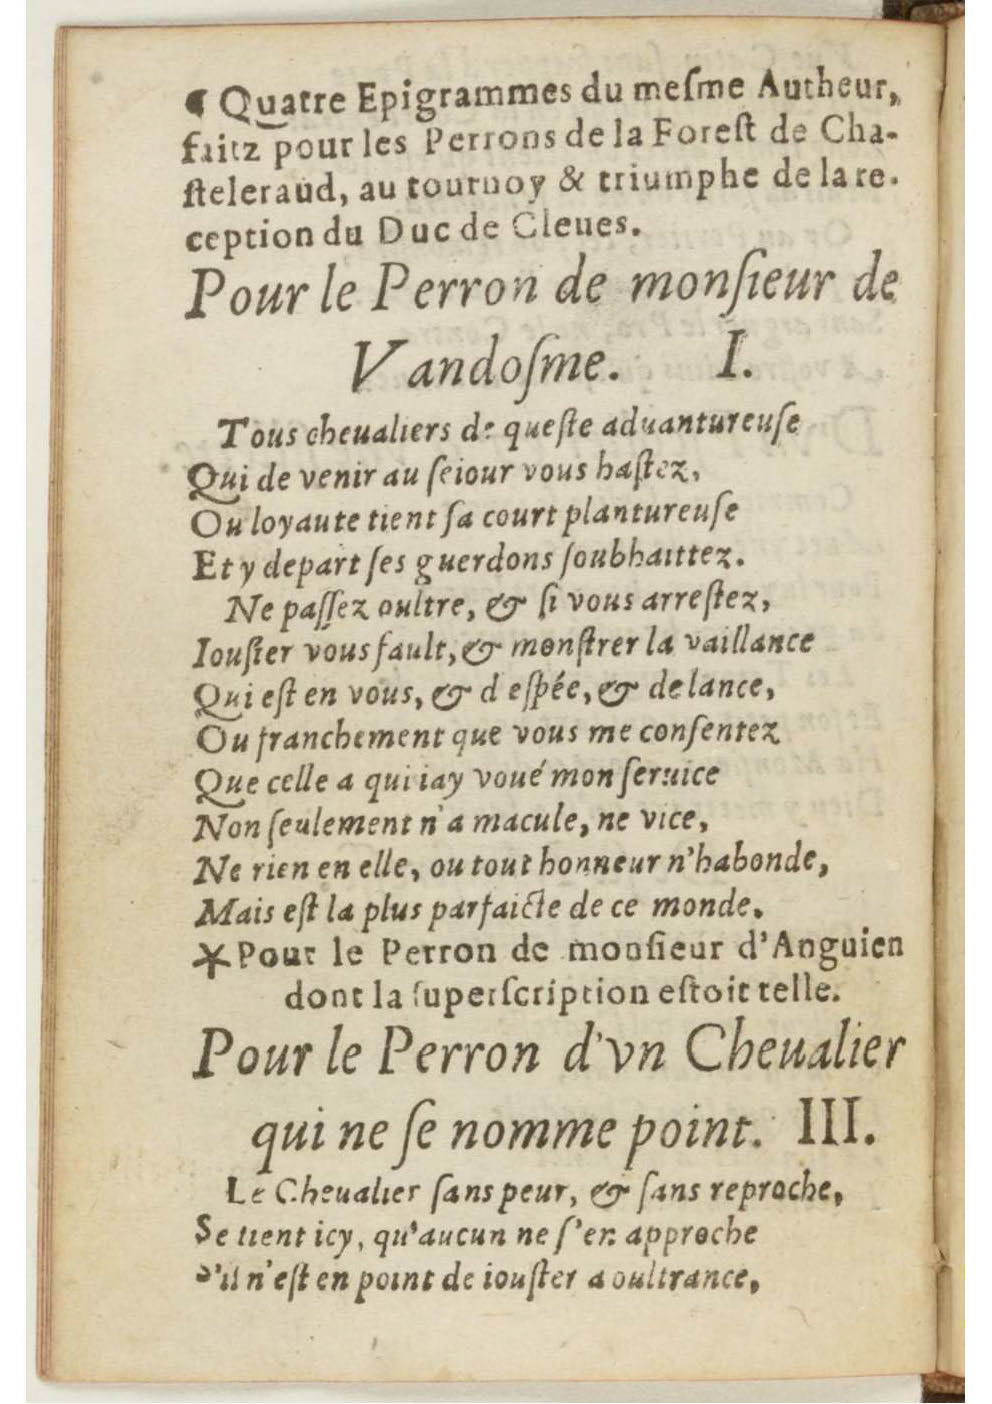 ¶ Quatre Epigrammes du meſme Autheur,
faitz pour les Perrons de la Foreſt de Cha-
ſteleraud, au tournoy & triumphe de la re-
ception du Duc de Cleues.
Pour le Perron de monſieur de
Vandoſme. I.
Tous cheualiers de queſte aduantureuſe
Qui de venir au ſeiour vous haſtez,
Ou loyaute tient ſa court plantureuſe
Et y depart ſes guerdons ſoubhaittez.
Ne paſſez oultre, & ſi vous arreſtez,
Iouſter vous fault, & monſtrer la vaillance
Qui eſt en vous, & d eſpée, & de lance,
Ou franchement que vous me conſentez
Que celle a qui iay voué mon ſeruice
Non ſeulement n'a macule, ne vice,
Ne rien en elle, ou tout honneur n'habonde,
Mais eſt la plus parfaicte de ce monde.
* Pour le Perron de monſieur d'Anguien
dont la ſuperſcription eſtoit telle.
Pour le Perron d'vn Cheualier
qui ne ſe nomme point. III.
Le Cheualier ſans peur, & ſans reproche,
Se tient icy, qu'aucun ne ſ'en approche
S'il n'eſt en point de iouſter a oultrance,